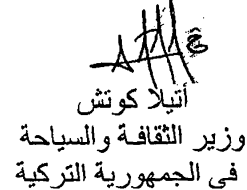 أتيلا كوتش
وزير الثقافة والسياحة
في الجمهورية التركية